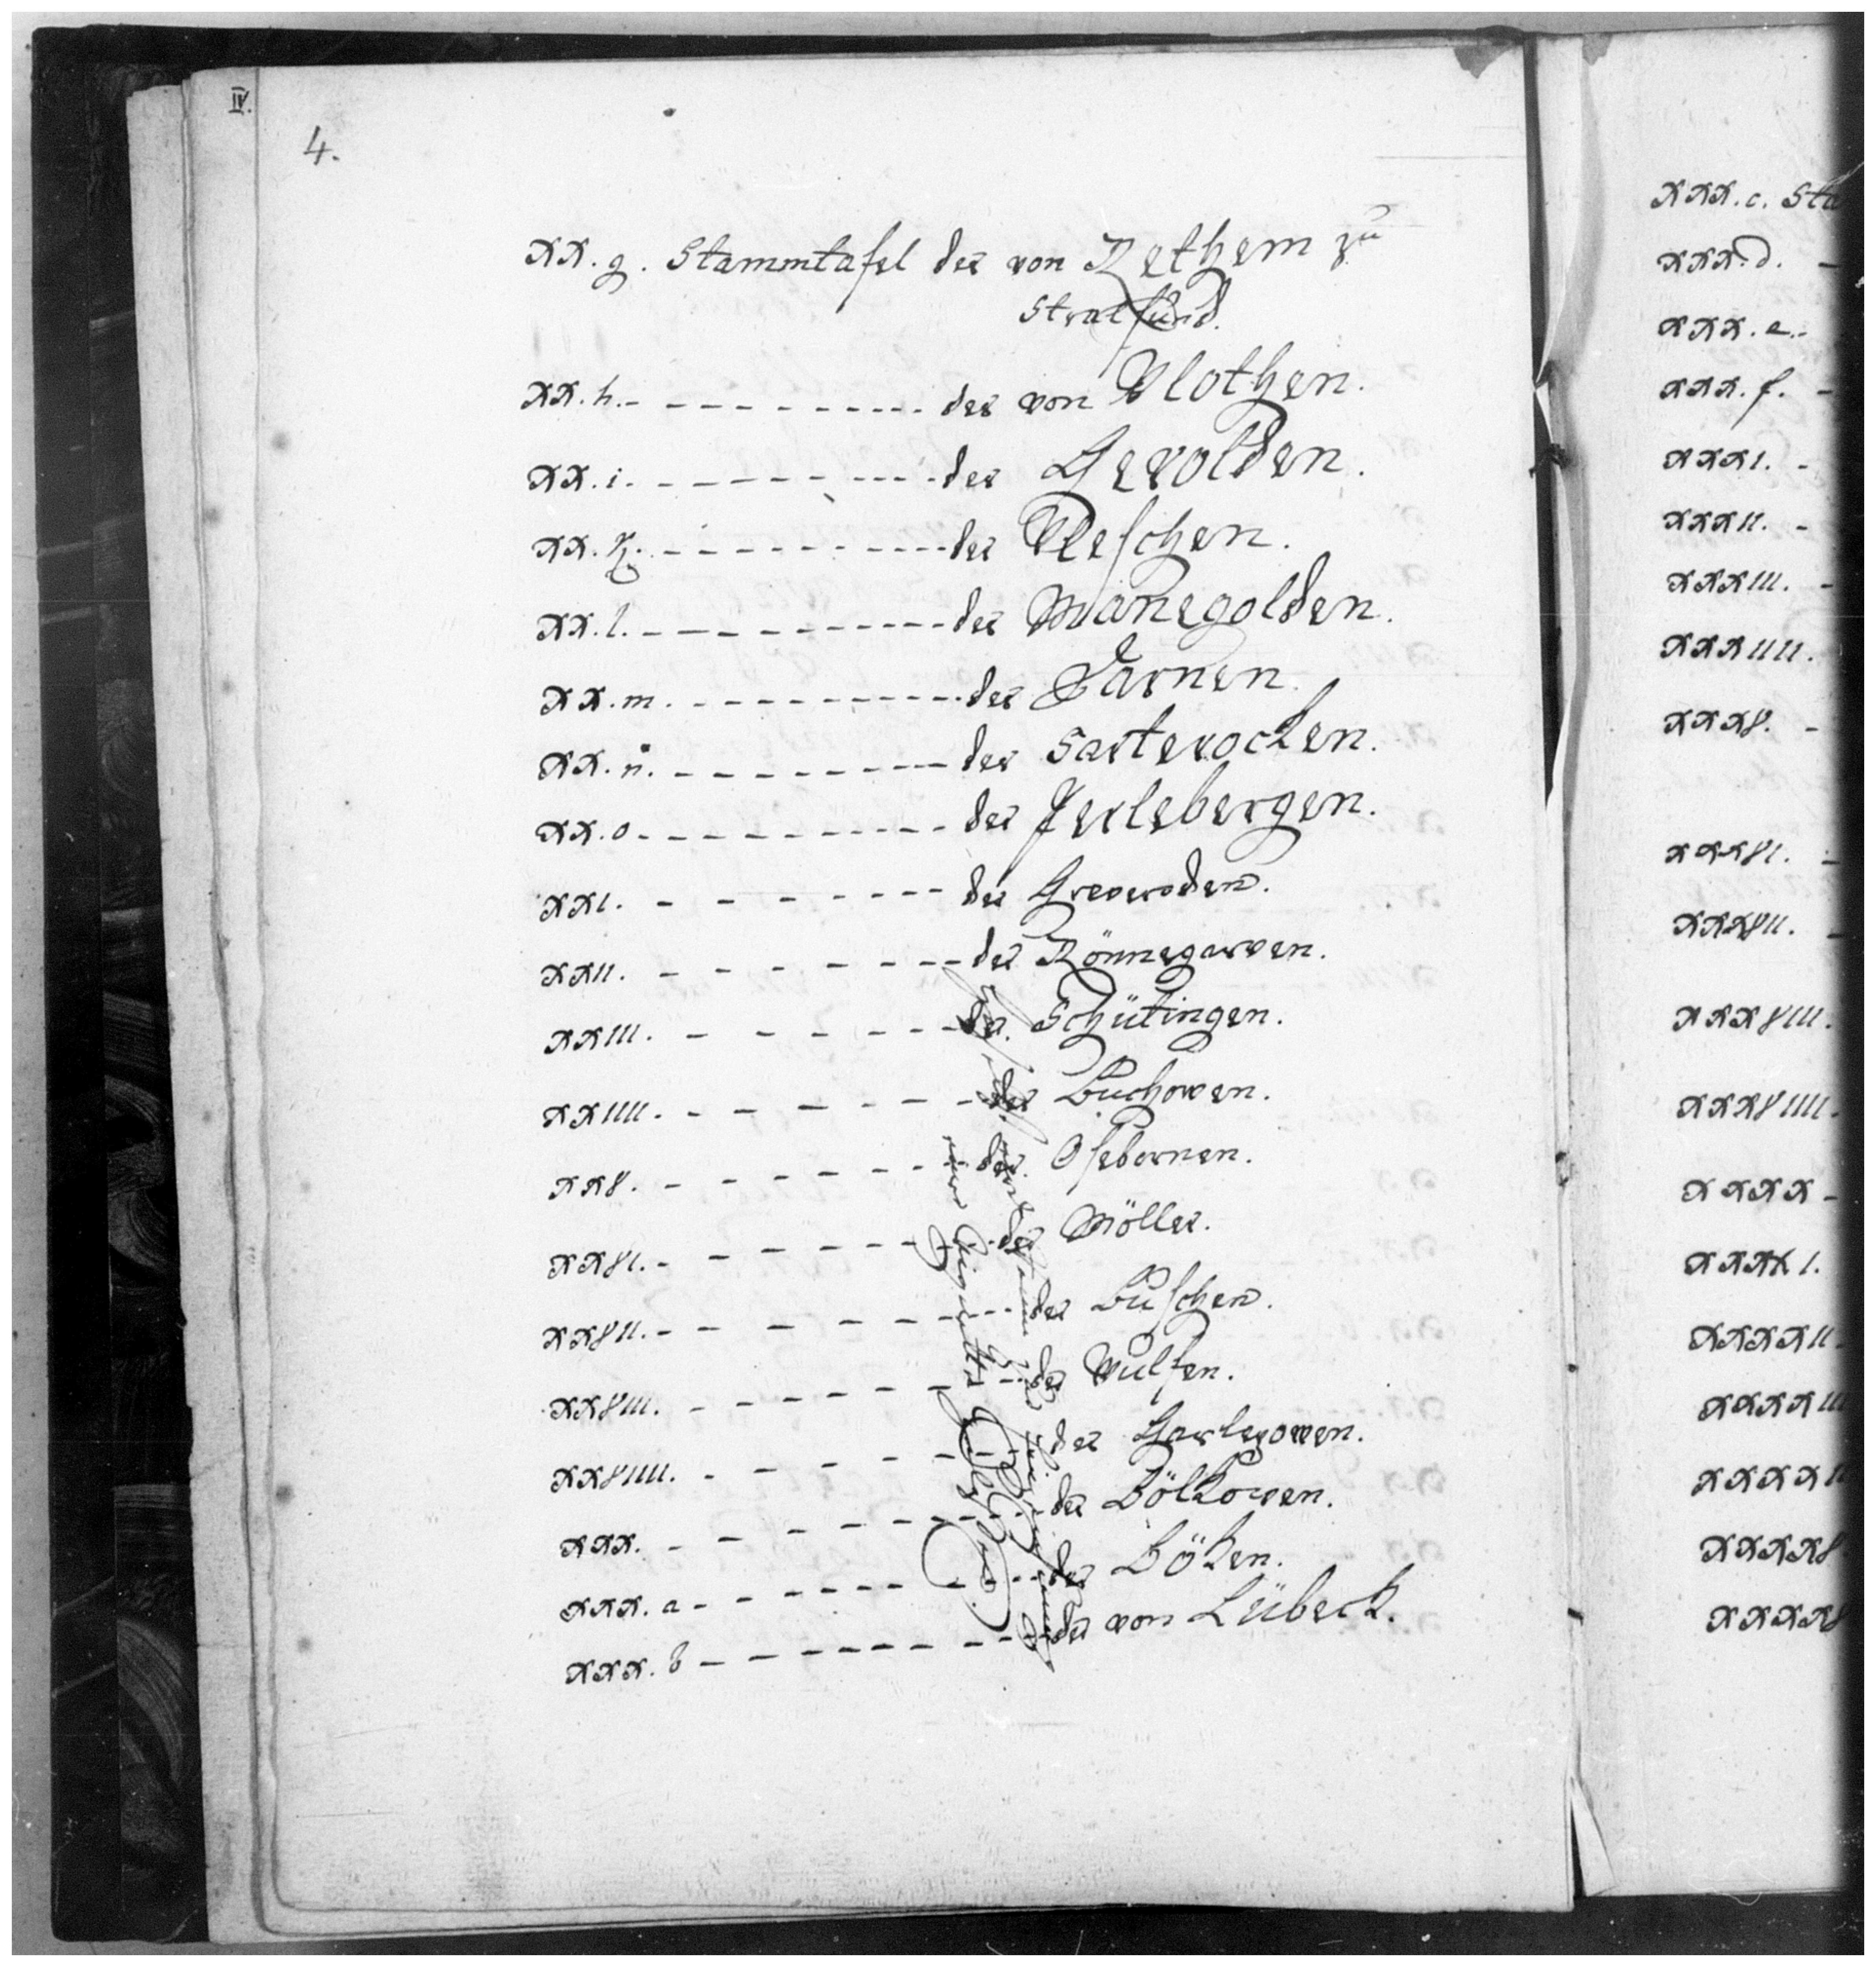 IV.
4.
XX. g. Stammtafel der von Rethem zu
Stralsund.
XX. h. - - - - - - - - - der von Vlothen.
XX. i. - - - - - - - - - der Gerolden.
XX. K. - - - - - - - - - der Vleschen.
XX. l. - - - - - - - - - der Manegolden.
XX. m. - - - - - - - - - der Darnen.
XX. n. - - - - - - - - - der Sarterocken.
XX. o - - - - - - - - - der Perlebergen.
XXI. - - - - - - - der Greveroden.
XXII. - - - - - - - der Rönnegarven.
XXIII. - - - - - - - der Schütingen.
XXIIII. - - - - - - - der Buchowen.
XXV. - - - - - - - der Osebornen.
XXVI. - - - - - - - der Möller.
XXVII. - - - - - - - der Buschen.
XXVIII. - - - - - - - der Wulfen.
XXVIIII. - - - - - - - der
XXX. - - - - - - - der Bölkowen.
XXX. a - - - - - - - der Böken.
XXX. b - - - - - - - der von Lübeck.
XXX. c. Sta
XXX. d. -
XXX. e. -
XXX. f. -
XXXI. -
XXXII. -
XXXIII. -
XXXIIII.
XXXV. -
XXXVI. -
XXXVII. -
XXXVIII.
XXXVIIII.
XXXX -
XXXXI.
XXXXII.
XXXXIII
XXXXII
XXXXV
XXXXV